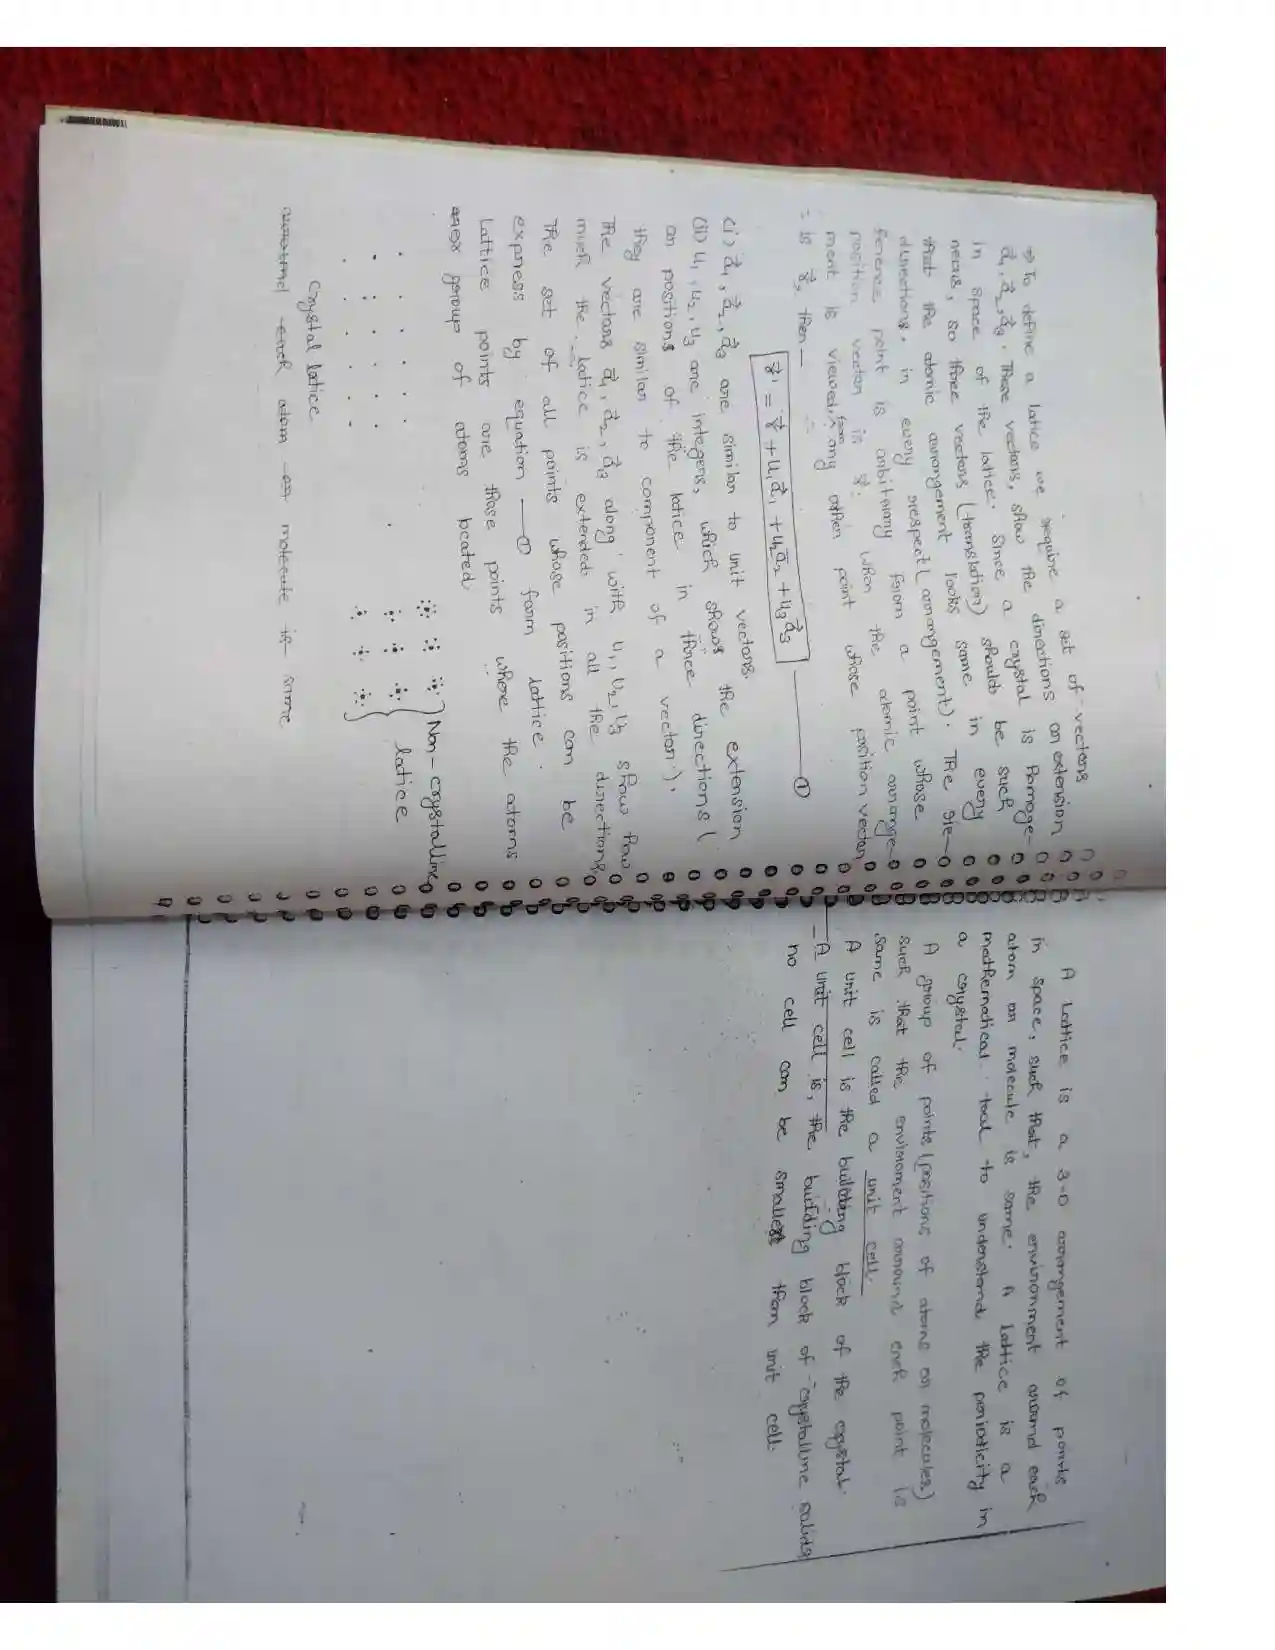 ⇒ To define a latice we require a set of vectors
a⃗₁, a⃗₂, a⃗₃. These vectors, show the directions or extension
in space of the lattice. Since a crystal is Homoge-
neous, so three vectors (translation) should be such
that the atomic arrangement looks same in every
directions. in every respect (arrangement). The re-
ference point is arbitrary from a point whose
position vector is r⃗. When the atomic arrange-
ment is viewed, from any other point whose position vector
is r⃗', then —
r⃗' = r⃗ + u₁a⃗₁ + u₂a⃗₂ + u₃a⃗₃ —— ①
(i) a⃗₁, a⃗₂, a⃗₃ are similar to unit vectors.
(ii) u₁, u₂, u₃ are integers, which shows the extension
or positions of the latice in three directions (
they are similar to component of a vector).
The vectors a⃗₁, a⃗₂, a⃗₃ along with u₁, u₂, u₃ show how
much the latice is extended in all the directions.
The set of all points whose positions can be
express by equation —① form lattice.
Lattice points are those points where the atoms
or group of atoms located.
Non-crystalline
latice
Crystal latice
each atom or molecule is same
A Lattice is a 3-D arrangement of points
in space, such that, the environment around each
atom or molecule is same. A lattice is a
mathematical tool to understand the periodicity in
a crystal.
A group of points (positions of atoms or molecules)
such that the enviroment around each point is
same is called a unit cell.
A unit cell is the building block of the crystal.
- A unit cell is, the building block of crystalline solids
no cell can be smallest than unit cell.